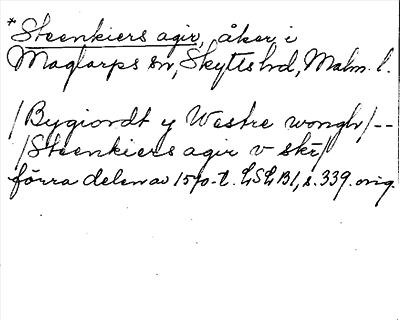 *Steenkiers agir, åker i
Maglarps sn, Skytts hd, Malm. l.
/Bygiordt y Westre wongh/--
/Steenkiers agir v skr/
förra delen av 1570-t. LSLB1, s. 339. orig.